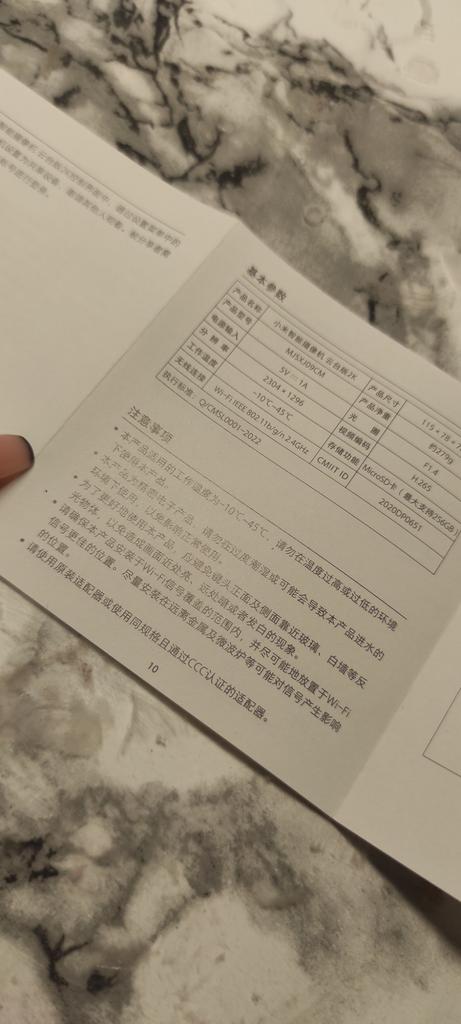 智能摄像机 云台版2K控制界面中，通过设置菜单中的
基本参数
产品名称 小米智能摄像机 云台版2K 产品尺寸 115 × 78 × 7
产品型号 MJSXJ09CM 产品净重 约279g
电源输入 5V⎓1A 光 圈 F1.4
分 辨 率 2304 × 1296 视频编码 H.265
工作温度 -10℃~45℃ 存储功能 MicroSD卡（最大支持256GB）
无线连接 Wi-Fi IEEE 802.11b/g/n 2.4GHz CMIIT ID 2020DP0651
执行标准: Q/CMSL0001-2022
注意事项
• 本产品适用的工作温度为-10℃~45℃，请勿在温度过高或过低的环境
下使用本产品。
• 本产品为精密电子产品，请勿在过度潮湿或可能会导致本产品进水的
环境下使用，以免影响正常使用。
• 为了更好地使用本产品，应避免镜头正面及侧面靠近玻璃、白墙等反
光物体，以免造成画面近处亮、远处暗或者发白的现象。
• 请确保本产品安装于Wi-Fi信号覆盖的范围内，并尽可能地放置于Wi-Fi
信号更佳的位置。尽量安装在远离金属及微波炉等可能对信号产生影响
的位置。
• 请使用原装适配器或使用同规格且通过CCC认证的适配器。
10